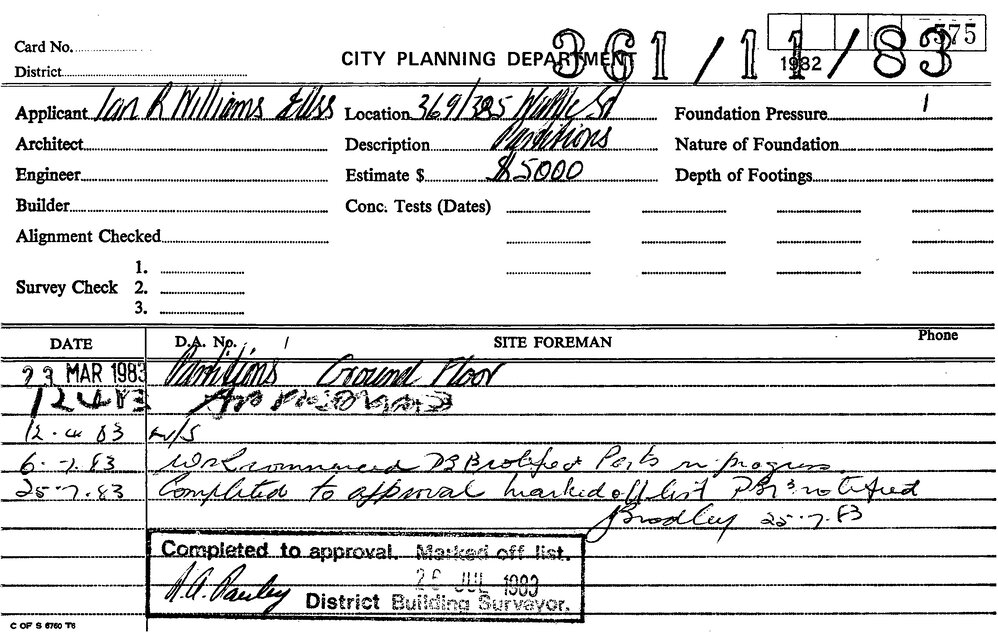 361/11/83
575
1982
Card No.
CITY PLANNING DEPARTMENT
District
Applicant Ian R Williams Location 369/385 St Foundation Pressure
Architect Description Partitions Nature of Foundation
Engineer Estimate $ $5000 Depth of Footings
Builder Conc. Tests (Dates)
Alignment Checked
1.
Survey Check 2.
3.
DATE D.A. No. SITE FOREMAN Phone
23 MAR 1983 Partitions Ground Floor
12 4 83 APPROVED
12.4.83 W/S
6.7.83 Work commenced DB notified Parts in progress.
25.7.83 Completed to approval marked off list DBS notified
Bradley 25.7.83
Completed to approval. Marked off list.
26 JUL 1983
District Building Surveyor.
C OF S 6760 T6